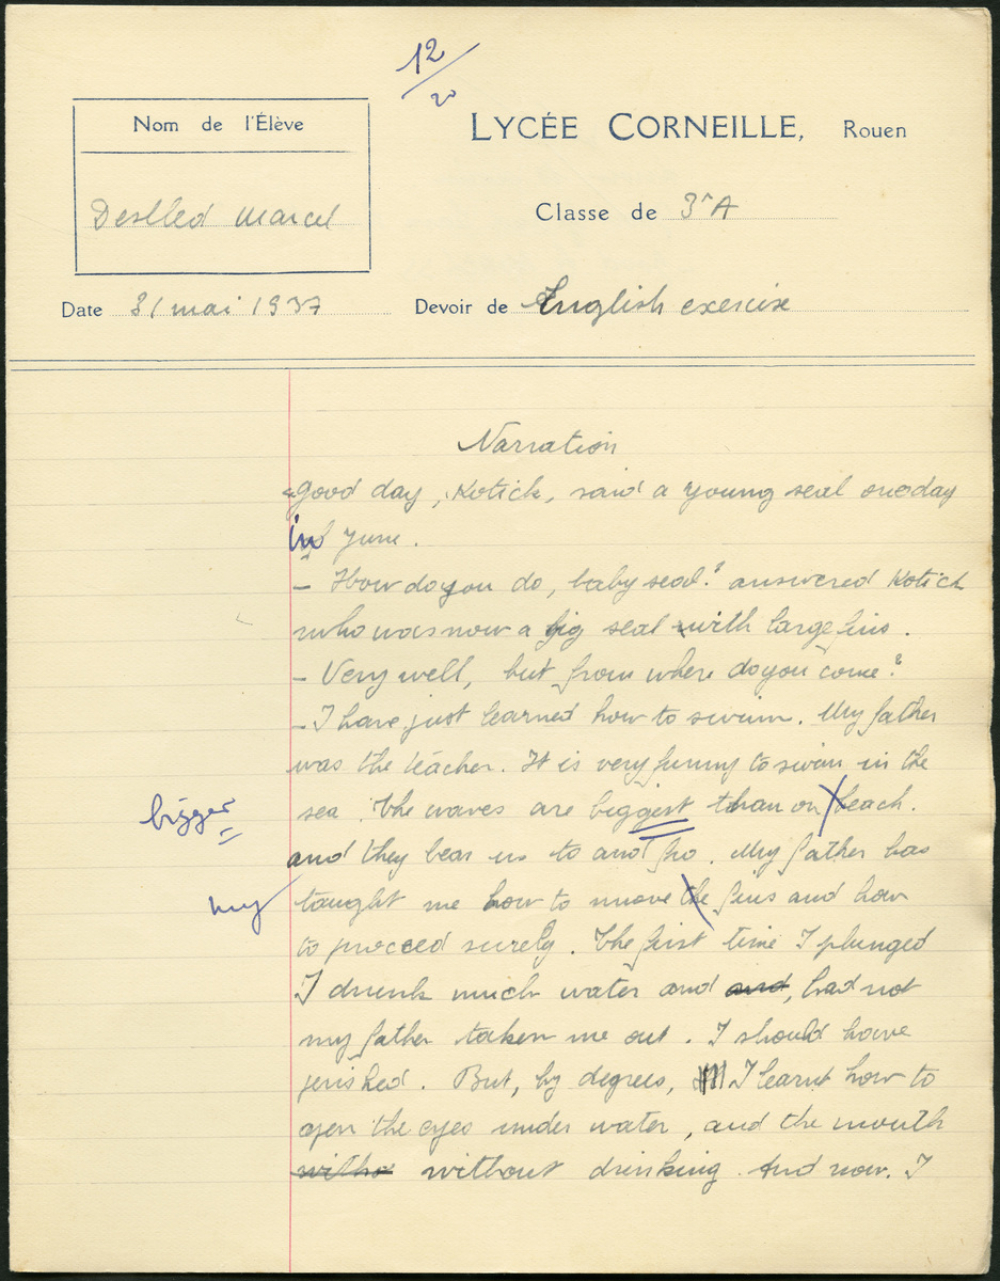 12/20
Nom de l'Élève
LYCÉE CORNEILLE, Rouen
Marcel
Classe de 3e A
Date 31 mai 1937
Devoir de English exercise
Narration
"Good day, Kotick, said a young seal one day
in June.
- How do you do, baby seal? answered Kotick
who was now a big seal with large fins.
- Very well, but from where do you come?
- I have just learned how to swim. My father
was the teacher. It is very funny to swim in the
sea. The waves are biggest than on beach.
bigger
and they bear us to and fro. My father has
my
taught me how to move the fins and how
to proceed surely. The first time I plunged
I drunk much water and and, had not
my father taken me out. I should have
perished. But, by degrees, I learnt how to
open the eyes under water, and the mouth
witho without drinking. And now. I